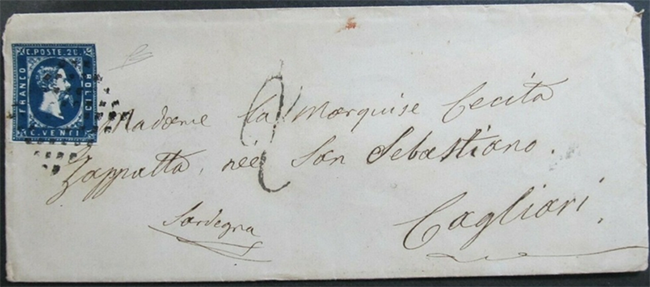 C. POSTE. 20.
FRANCO
BOLLO
C. VENTI
2
Madame La Marquise Cecita
Zappatta, née San Sebastiano.
Sardegna
Cagliari.